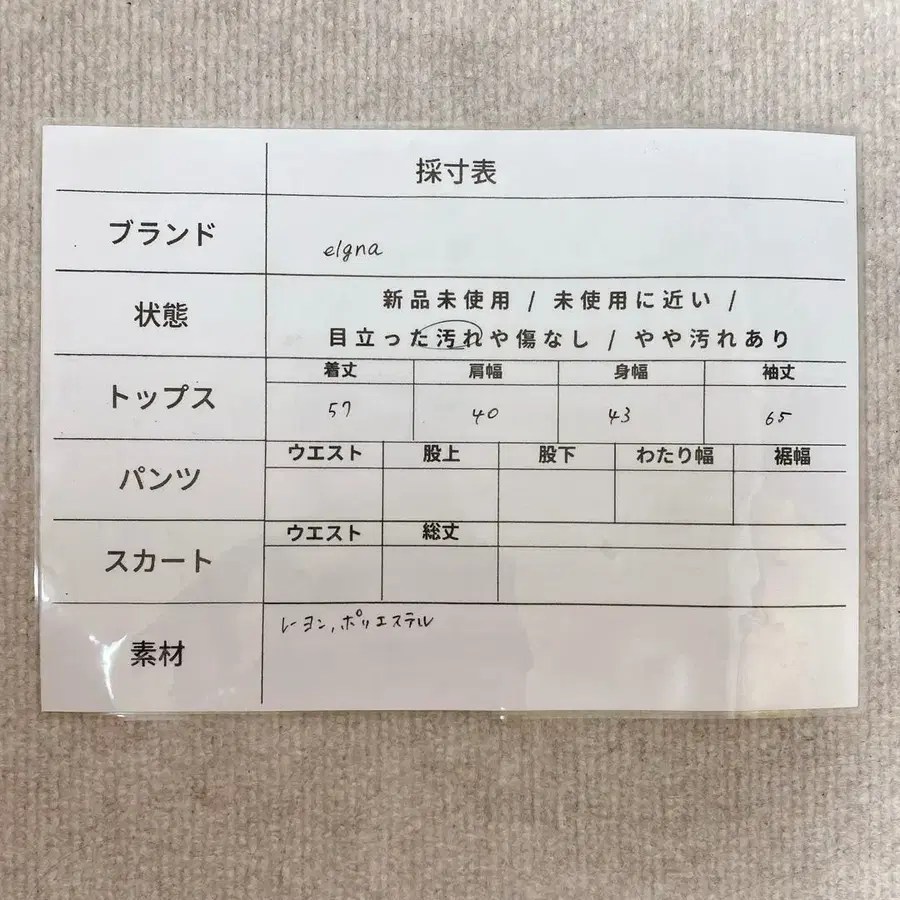 採寸表
ブランド
elgna
状態
新品未使用 / 未使用に近い /
目立った汚れや傷なし / やや汚れあり
トップス
着丈 肩幅 身幅 袖丈
57 40 43 65
パンツ
ウエスト 股上 股下 わたり幅 裾幅
スカート
ウエスト 総丈
素材
レーヨン,ポリエステル